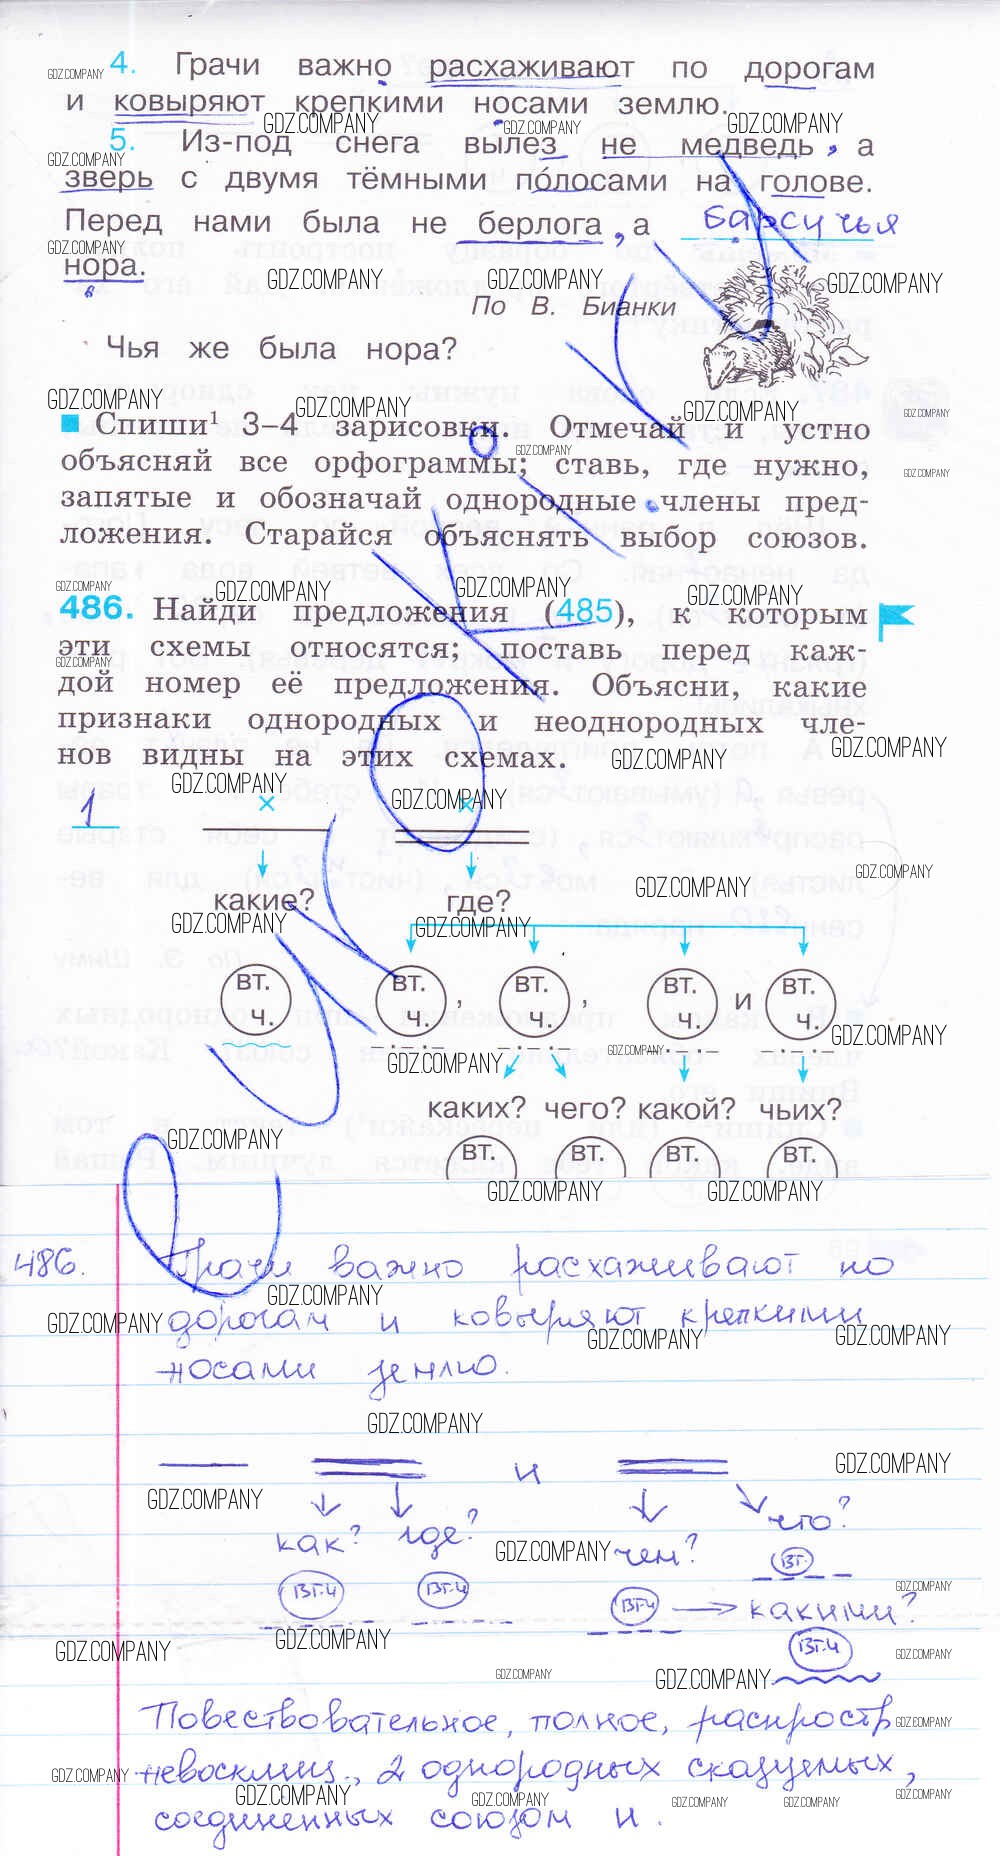 4. Грачи важно расхаживают по дорогам
и ковыряют крепкими носами землю.
5. Из-под снега вылез не медведь, а
зверь с двумя тёмными по́лосами на голове.
Перед нами была не берлога, а барсучья
нора.
По В. Бианки
Чья же была нора?
Спиши¹ 3–4 зарисовки. Отмечай и устно
объясняй все орфограммы; ставь, где нужно,
запятые и обозначай однородные члены пред-
ложения. Старайся объяснять выбор союзов.
486. Найди предложения (485), к которым
эти схемы относятся; поставь перед каж-
дой номер её предложения. Объясни, какие
признаки однородных и неоднородных чле-
нов видны на этих схемах.
1 × ×
какие? где?
вт. ч. вт. ч. , вт. ч. , вт. ч. и вт. ч.
каких? чего? какой? чьих?
вт. вт. вт. вт.
486. Грачи важно расхаживают по
дорогам и ковыряют крепкими
носами землю.
и
как? где? чем? что?
вт.ч вт.ч вт.ч вт.
какими?
вт.ч
Повествовательное, полное, распростр
невосклиц., 2 однородных сказуемых,
соединенных союзом и.
GDZ.COMPANY